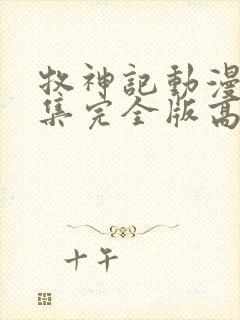 牧神記動漫
集完全版高
十午